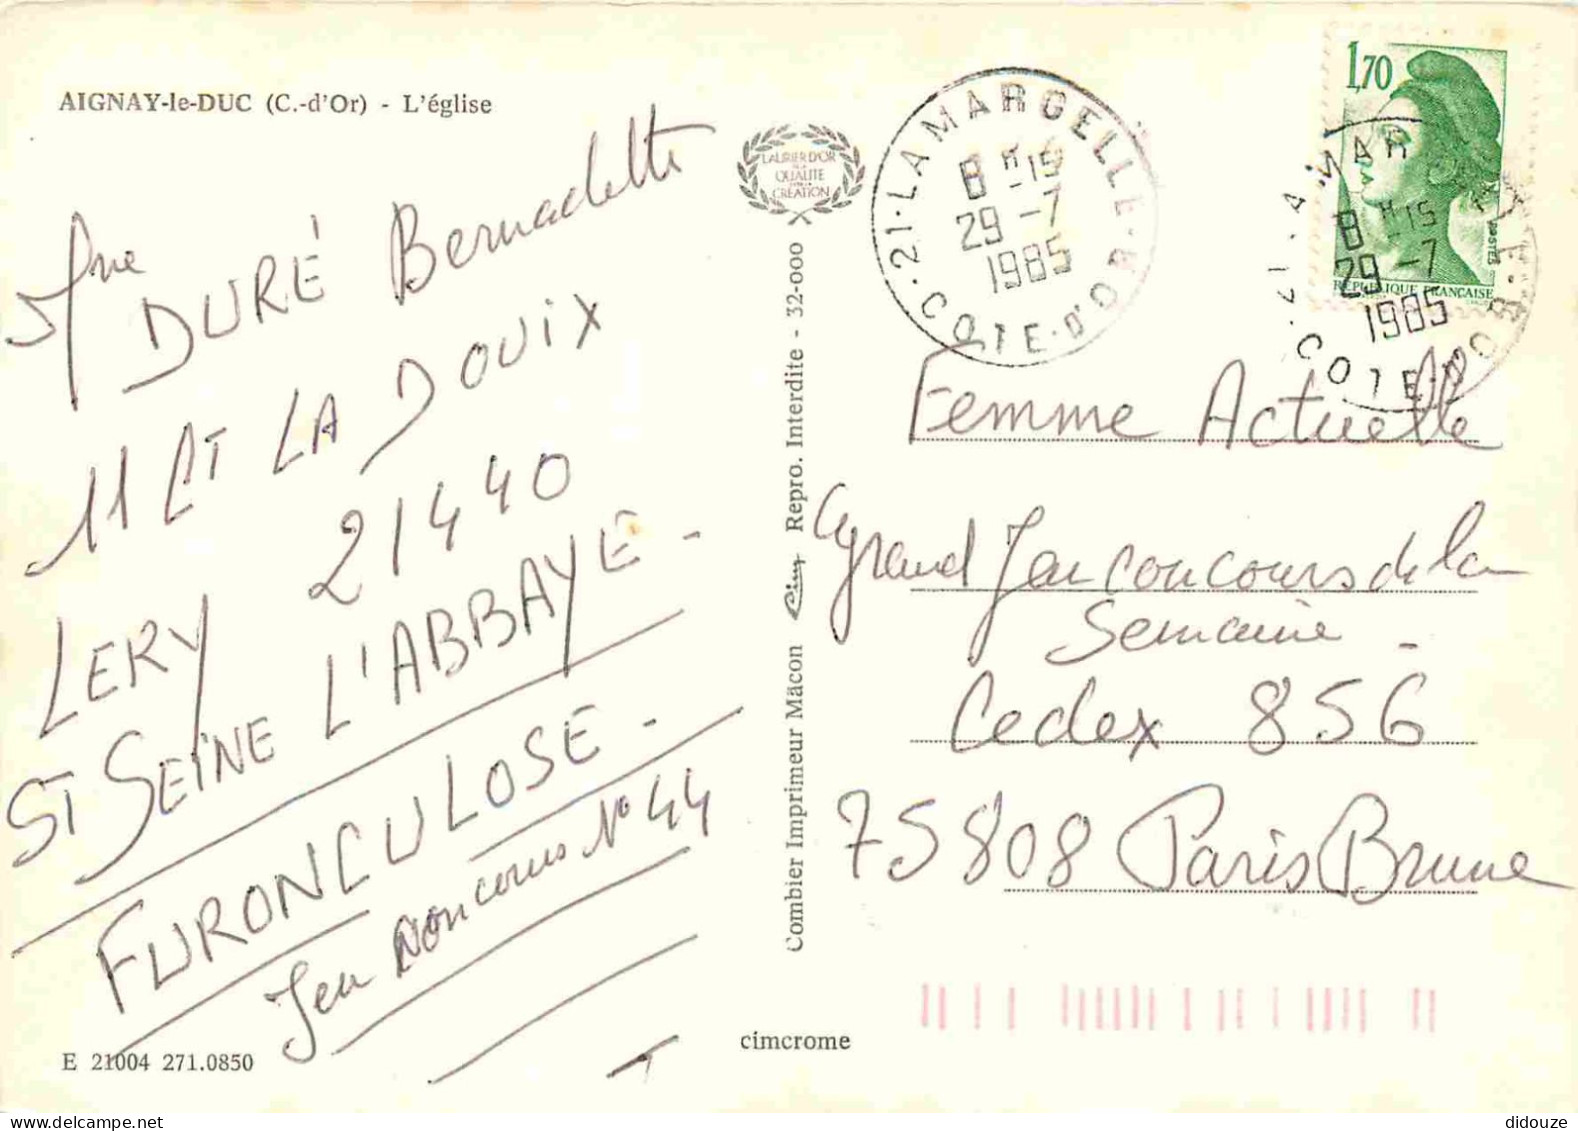 AIGNAY-le-DUC (C.-d'Or) - L'église
Mme
DURÉ Bernadette
11 CT LA DOUIX
21440
LERY
ST SEINE L'ABBAYE -
FURONCULOSE. -
Jeu concours N° 44
E 21004 271.0850
LAURIER D'OR
DE LA
QUALITÉ
CRÉATION
Combier Imprimeur Mâcon Cim Repro. Interdite - 32-000
cimcrome
21 - LAMARGELLE
8 H -15
29 -7
1985
COTE-D'OR
1,70
REPUBLIQUE FRANÇAISE
POSTES
8 H -15
29 -7
1985
COTE-D'OR
Femme Actuelle
Grand Jeu concours de la
Semaine -
Cedex 856
75808 Paris Brune
didouze